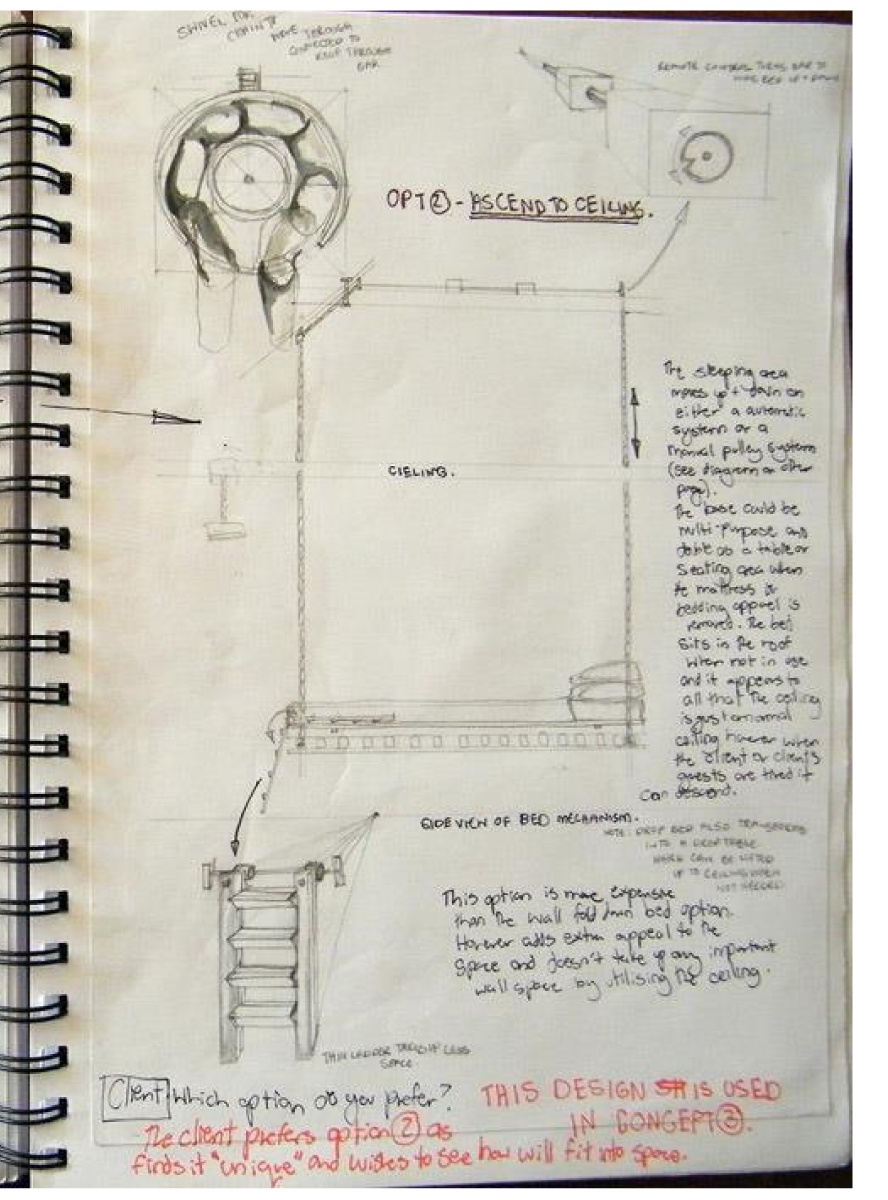 SWIVEL FOR
CHAIN TO MOVE THROUGH
CONNECTED TO
ROOF THROUGH
BAR
REMOTE CONTROL TURNS BAR TO
MOVE BED UP + DOWN
OPT ② - ASCEND TO CEILING.
The sleeping area
moves up + down on
either a automatic
system or a
manual pulley system
(see diagram on other
page).
CIELING.
The base could be
multi-purpose and
doble as a table or
seating area when
the mattress or
bedding apparel is
removed. The bed
sits in the roof
when not in use
and it appears to
all that the ceiling
is just a normal
ceiling however when
the client or clients
guests are tired it
can descend.
SIDE VIEW OF BED MECHANISM.
NOTE: DROP BED ALSO TRANSFORMS
INTO A DROP TABLE
WHICH CAN BE LIFTED
UP TO CEILING WHEN
NOT NEEDED
This option is more expensive
than the wall fold down bed option.
However adds extra appeal to the
space and doesn't take up any important
wall space by utilising the ceiling.
THIN LADDER TAKES UP LESS
SPACE
Client Which option do you prefer?
THIS DESIGN IS USED
IN CONCEPT ③.
The client prefers option ② as
finds it "unique" and wishes to see how will fit into space.